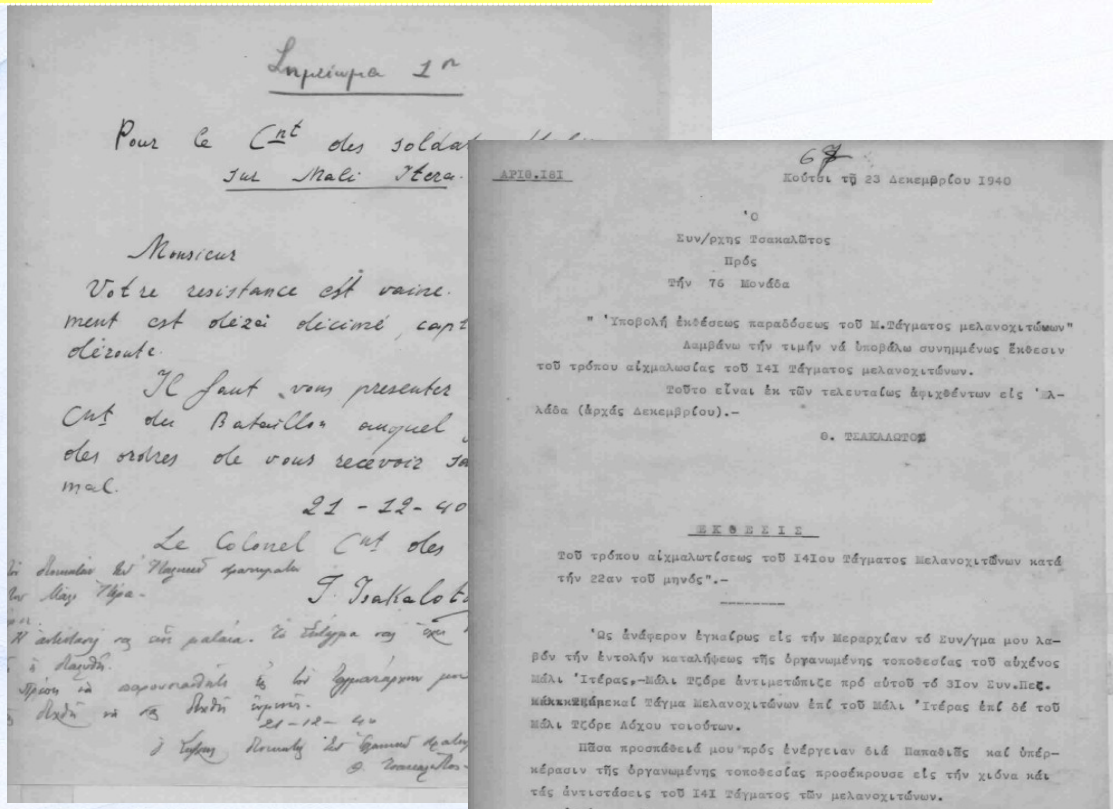 Σημείωμα 1ον
Pour le Cnt des soldats
sur Mali Itera.
Monsieur
Votre resistance est vaine.
ment est dézai décimé, capt
déroute.
Il faut vous presenter
Cnt du Bataillon auquel
des ordres de vous recevoir
mal.
21-12-40
Le Colonel Cnt des
T. Tsakaloto
Ἡ ἀντίστασή σας εἶναι ματαία. Τὸ Σύνταγμα σας ἔχει
21-12-40
67
ΑΡΙΘ.181
Κούτσι τῇ 23 Δεκεμβρίου 1940
Ὁ
Συν/ρχης Τσακαλῶτος
Πρός
Τήν 76 Μονάδα
" Ὑποβολή ἐκθέσεως παραδόσεως τοῦ Μ.Τάγματος μελανοχιτώνων"
Λαμβάνω τήν τιμήν νά ὑποβάλω συνημμένως ἔκθεσιν
τοῦ τρόπου αἰχμαλωσίας τοῦ 141 Τάγματος μελανοχιτώνων.
Τοῦτο εἶναι ἐκ τῶν τελευταίως ἀφιχθέντων εἰς Ἑλ-
λάδα (ἀρχάς Δεκεμβρίου).-
Θ. ΤΣΑΚΑΛΩΤΟΣ
ΕΚΘΕΣΙΣ
Τοῦ τρόπου αἰχμαλωτίσεως τοῦ 141ου Τάγματος Μελανοχιτώνων κατά
τήν 22αν τοῦ μηνός".-
Ὡς ἀνάφερον ἐγκαίρως εἰς τήν Μεραρχίαν τό Συν/γμα μου λα-
βόν τήν ἐντολήν καταλήψεως τῆς ὀργανωμένης τοποθεσίας τοῦ αὐχένος
Μάλι Ἰτέρας,-Μάλι Τζόρε ἀντιμετώπιζε πρό αὐτοῦ τό 31ον Συν.Πεζ.
καί Τάγμα Μελανοχιτώνων ἐπί τοῦ Μάλι Ἰτέρας ἐπί δέ τοῦ
Μάλι Τζόρε Λόχου τοιούτων.
Πᾶσα προσπάθειά μου πρός ἐνέργειαν διά Παπαδιᾶς καί ὑπέρ-
κέρασιν τῆς ὀργανωμένης τοποθεσίας προσέκρουσε εἰς τήν χιόνα καί
τάς ἀντιστάσεις τοῦ 141 Τάγματος τῶν μελανοχιτώνων.